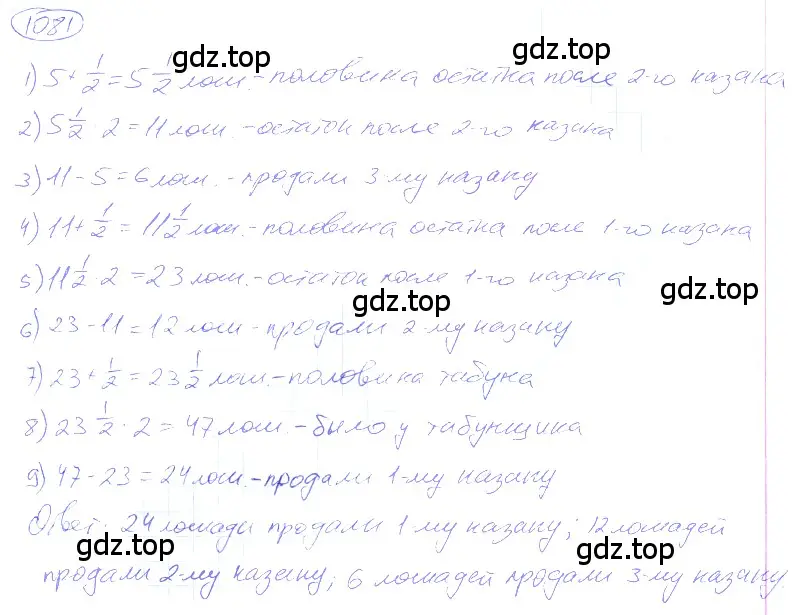 1081
gdz.top
1) 5 + 1/2 = 5 1/2 лош. - половина остатка после 2-го казака
2) 5 1/2 · 2 = 11 лош. - остаток после 2-го казака
3) 11 - 5 = 6 лош. - продали 3-му казаку
4) 11 + 1/2 = 11 1/2 лош. - половина остатка после 1-го казака
5) 11 1/2 · 2 = 23 лош. - остаток после 1-го казака
gdz.top
gdz.top
6) 23 - 11 = 12 лош. - продали 2-му казаку
7) 23 + 1/2 = 23 1/2 лош. - половина табуна
8) 23 1/2 · 2 = 47 лош. - было у табунщика
9) 47 - 23 = 24 лош. - продали 1-му казаку
Ответ: 24 лошади продали 1-му казаку; 12 лошадей
gdz.top
gdz.top
продали 2-му казаку; 6 лошадей продали 3-му казаку.